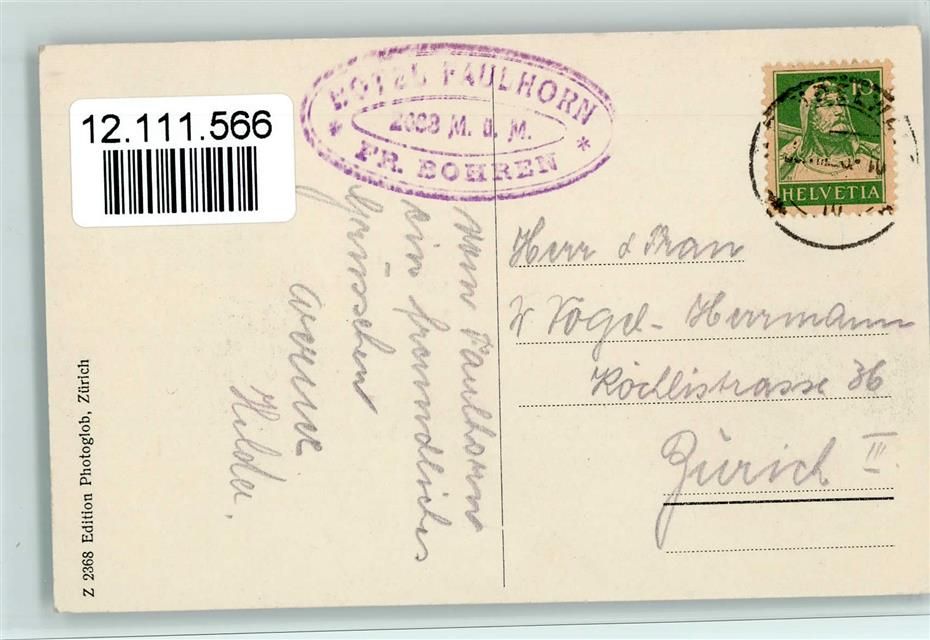 12.111.566
HOTEL FAULHORN
2683 M. ü. M.
FR. BOHREN
10
HELVETIA
Vom Faulhorn
ein freundliches
Grüsschen
Hilda.
Herr & Frau
Vogel-Herrmann
Köchlistrasse 36
Zürich III
Z 2368 Edition Photoglob, Zürich